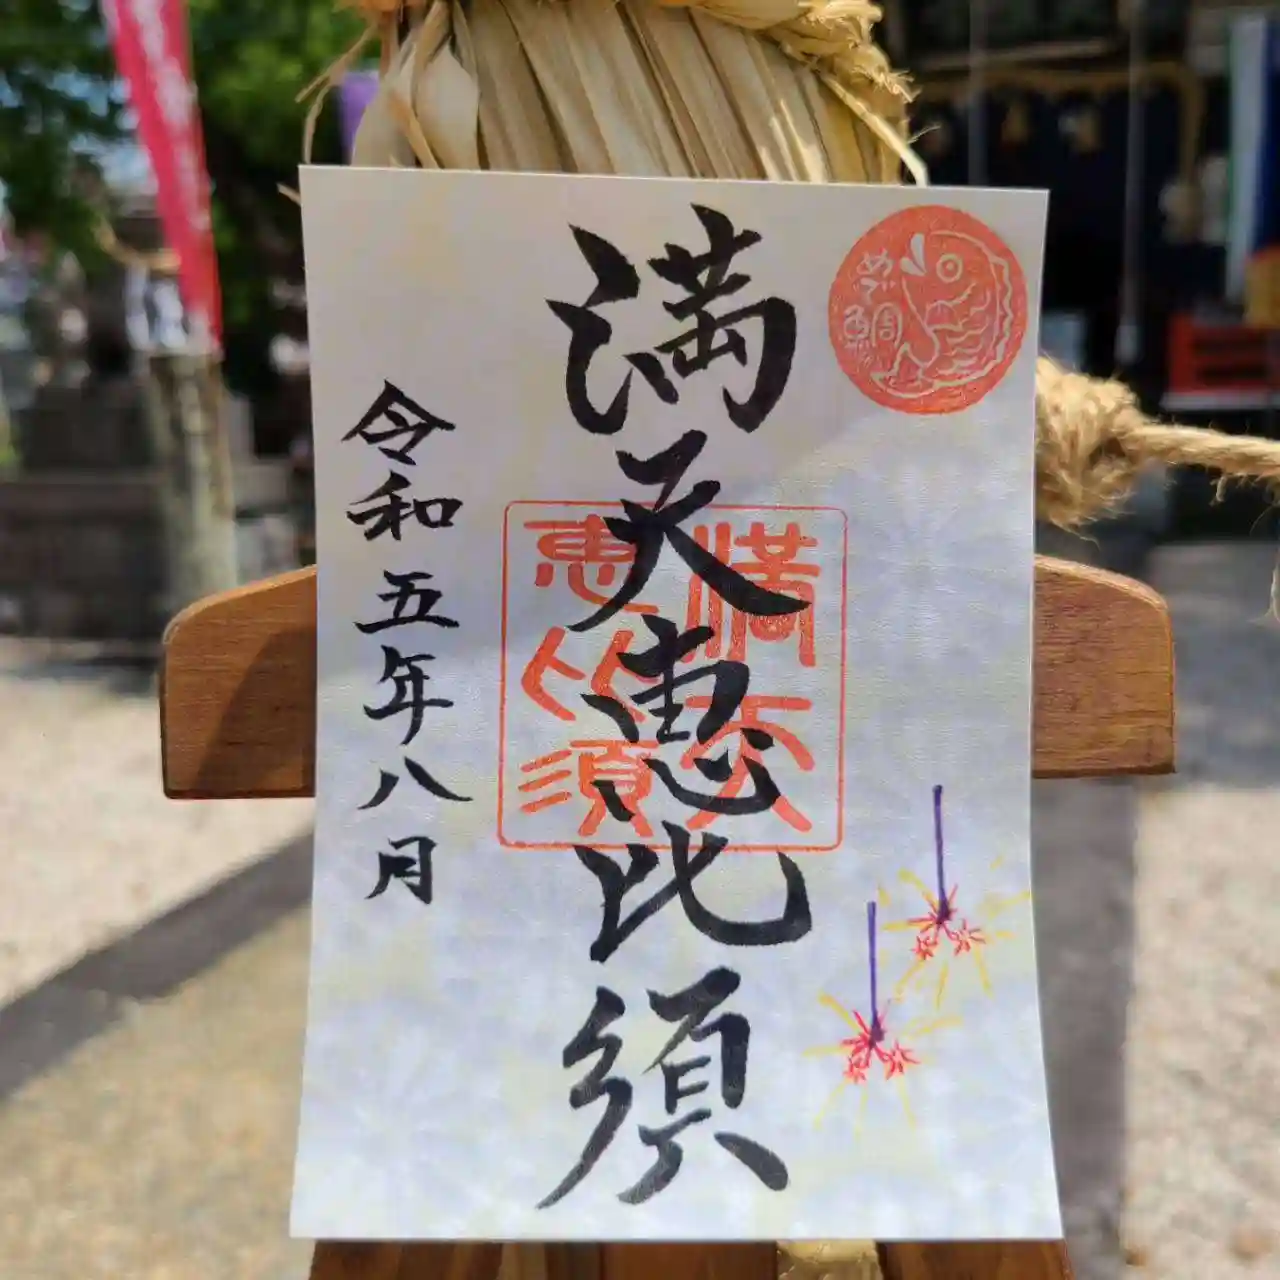 めで
鯛
満天恵比須
満天
恵比須
令和五年八月